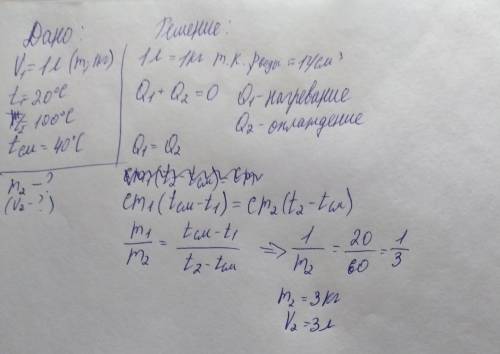 Дано:
V₁ = 1л (m₁ 1кг)
t₁ = 20°C
t₂ = 100°C
tсм = 40°C
m₂ - ?
(V₂ - ?)
Решение:
1л = 1кг т.к. ρводы = 1г/см³
Q₁ + Q₂ = 0 Q₁ - нагревание
Q₂ - охлаждение
Q₁ = Q₂
cm₁(tсм - t₁) = cm₂(t₂ - tсм)
m₁/m₂ = tсм - t₁/t₂ - tсм => 1/m₂ = 20/60 = 1/3
m₂ = 3кг
V₂ = 3л